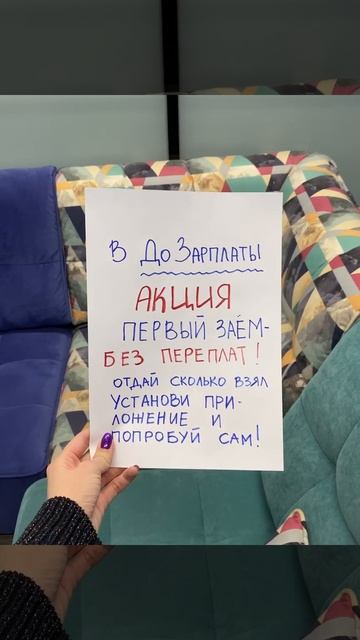 В До Зарплаты
АКЦИЯ
ПЕРВЫЙ ЗАЁМ-
БЕЗ ПЕРЕПЛАТ!
ОТДАЙ СКОЛЬКО ВЗЯЛ
УСТАНОВИ ПРИ-
ЛОЖЕНИЕ И
ПОПРОБУЙ САМ!